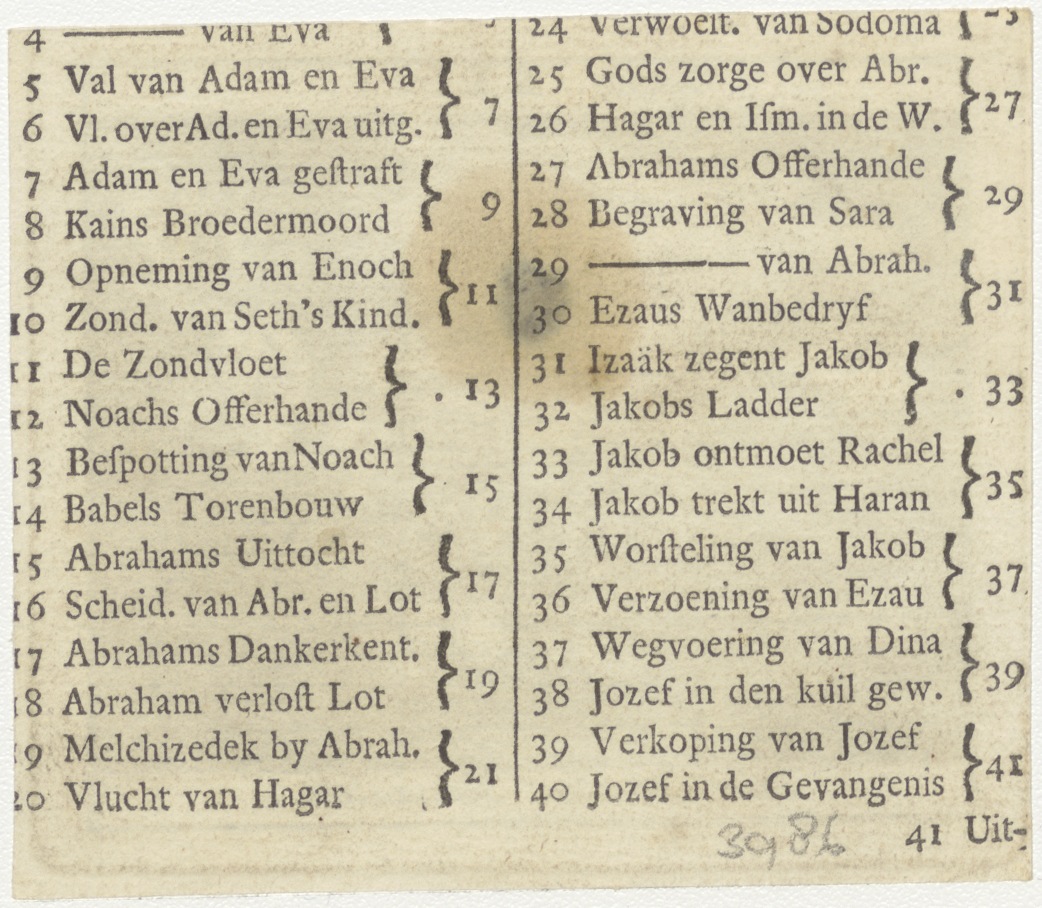 4 ——— van Eva }
5 Val van Adam en Eva }
6 Vl. over Ad. en Eva uitg. } 7
7 Adam en Eva geſtraft }
8 Kains Broedermoord } 9
9 Opneming van Enoch }
10 Zond. van Seth's Kind. } 11
11 De Zondvloet }
12 Noachs Offerhande } . 13
13 Beſpotting van Noach }
14 Babels Torenbouw } 15
15 Abrahams Uittocht }
16 Scheid. van Abr. en Lot } 17
17 Abrahams Dankerkent. }
18 Abraham verloſt Lot } 19
19 Melchizedek by Abrah. }
20 Vlucht van Hagar } 21
24 Verwoeſt. van Sodoma }
25 Gods zorge over Abr. }
26 Hagar en Iſm. in de W. } 27
27 Abrahams Offerhande }
28 Begraving van Sara } 29
29 ——— van Abrah. }
30 Ezaus Wanbedryf } 31
31 Izaäk zegent Jakob }
32 Jakobs Ladder } . 33
33 Jakob ontmoet Rachel }
34 Jakob trekt uit Haran } 35
35 Worſteling van Jakob }
36 Verzoening van Ezau } 37
37 Wegvoering van Dina }
38 Jozef in den kuil gew. } 39
39 Verkoping van Jozef }
40 Jozef in de Gevangenis } 41
41 Uit-